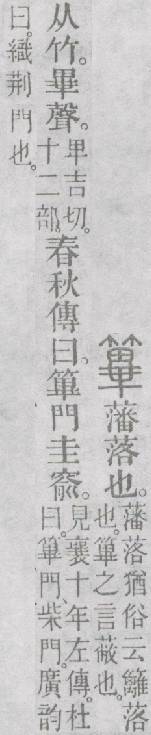 篳藩落也。藩落猶俗云籬落也。篳之言蔽也。
从竹。畢聲。卑吉切。十二部。春秋傳曰。篳門圭窬。見襄十年左傳。杜曰。篳門、柴門。廣韵
曰。織荆門也。